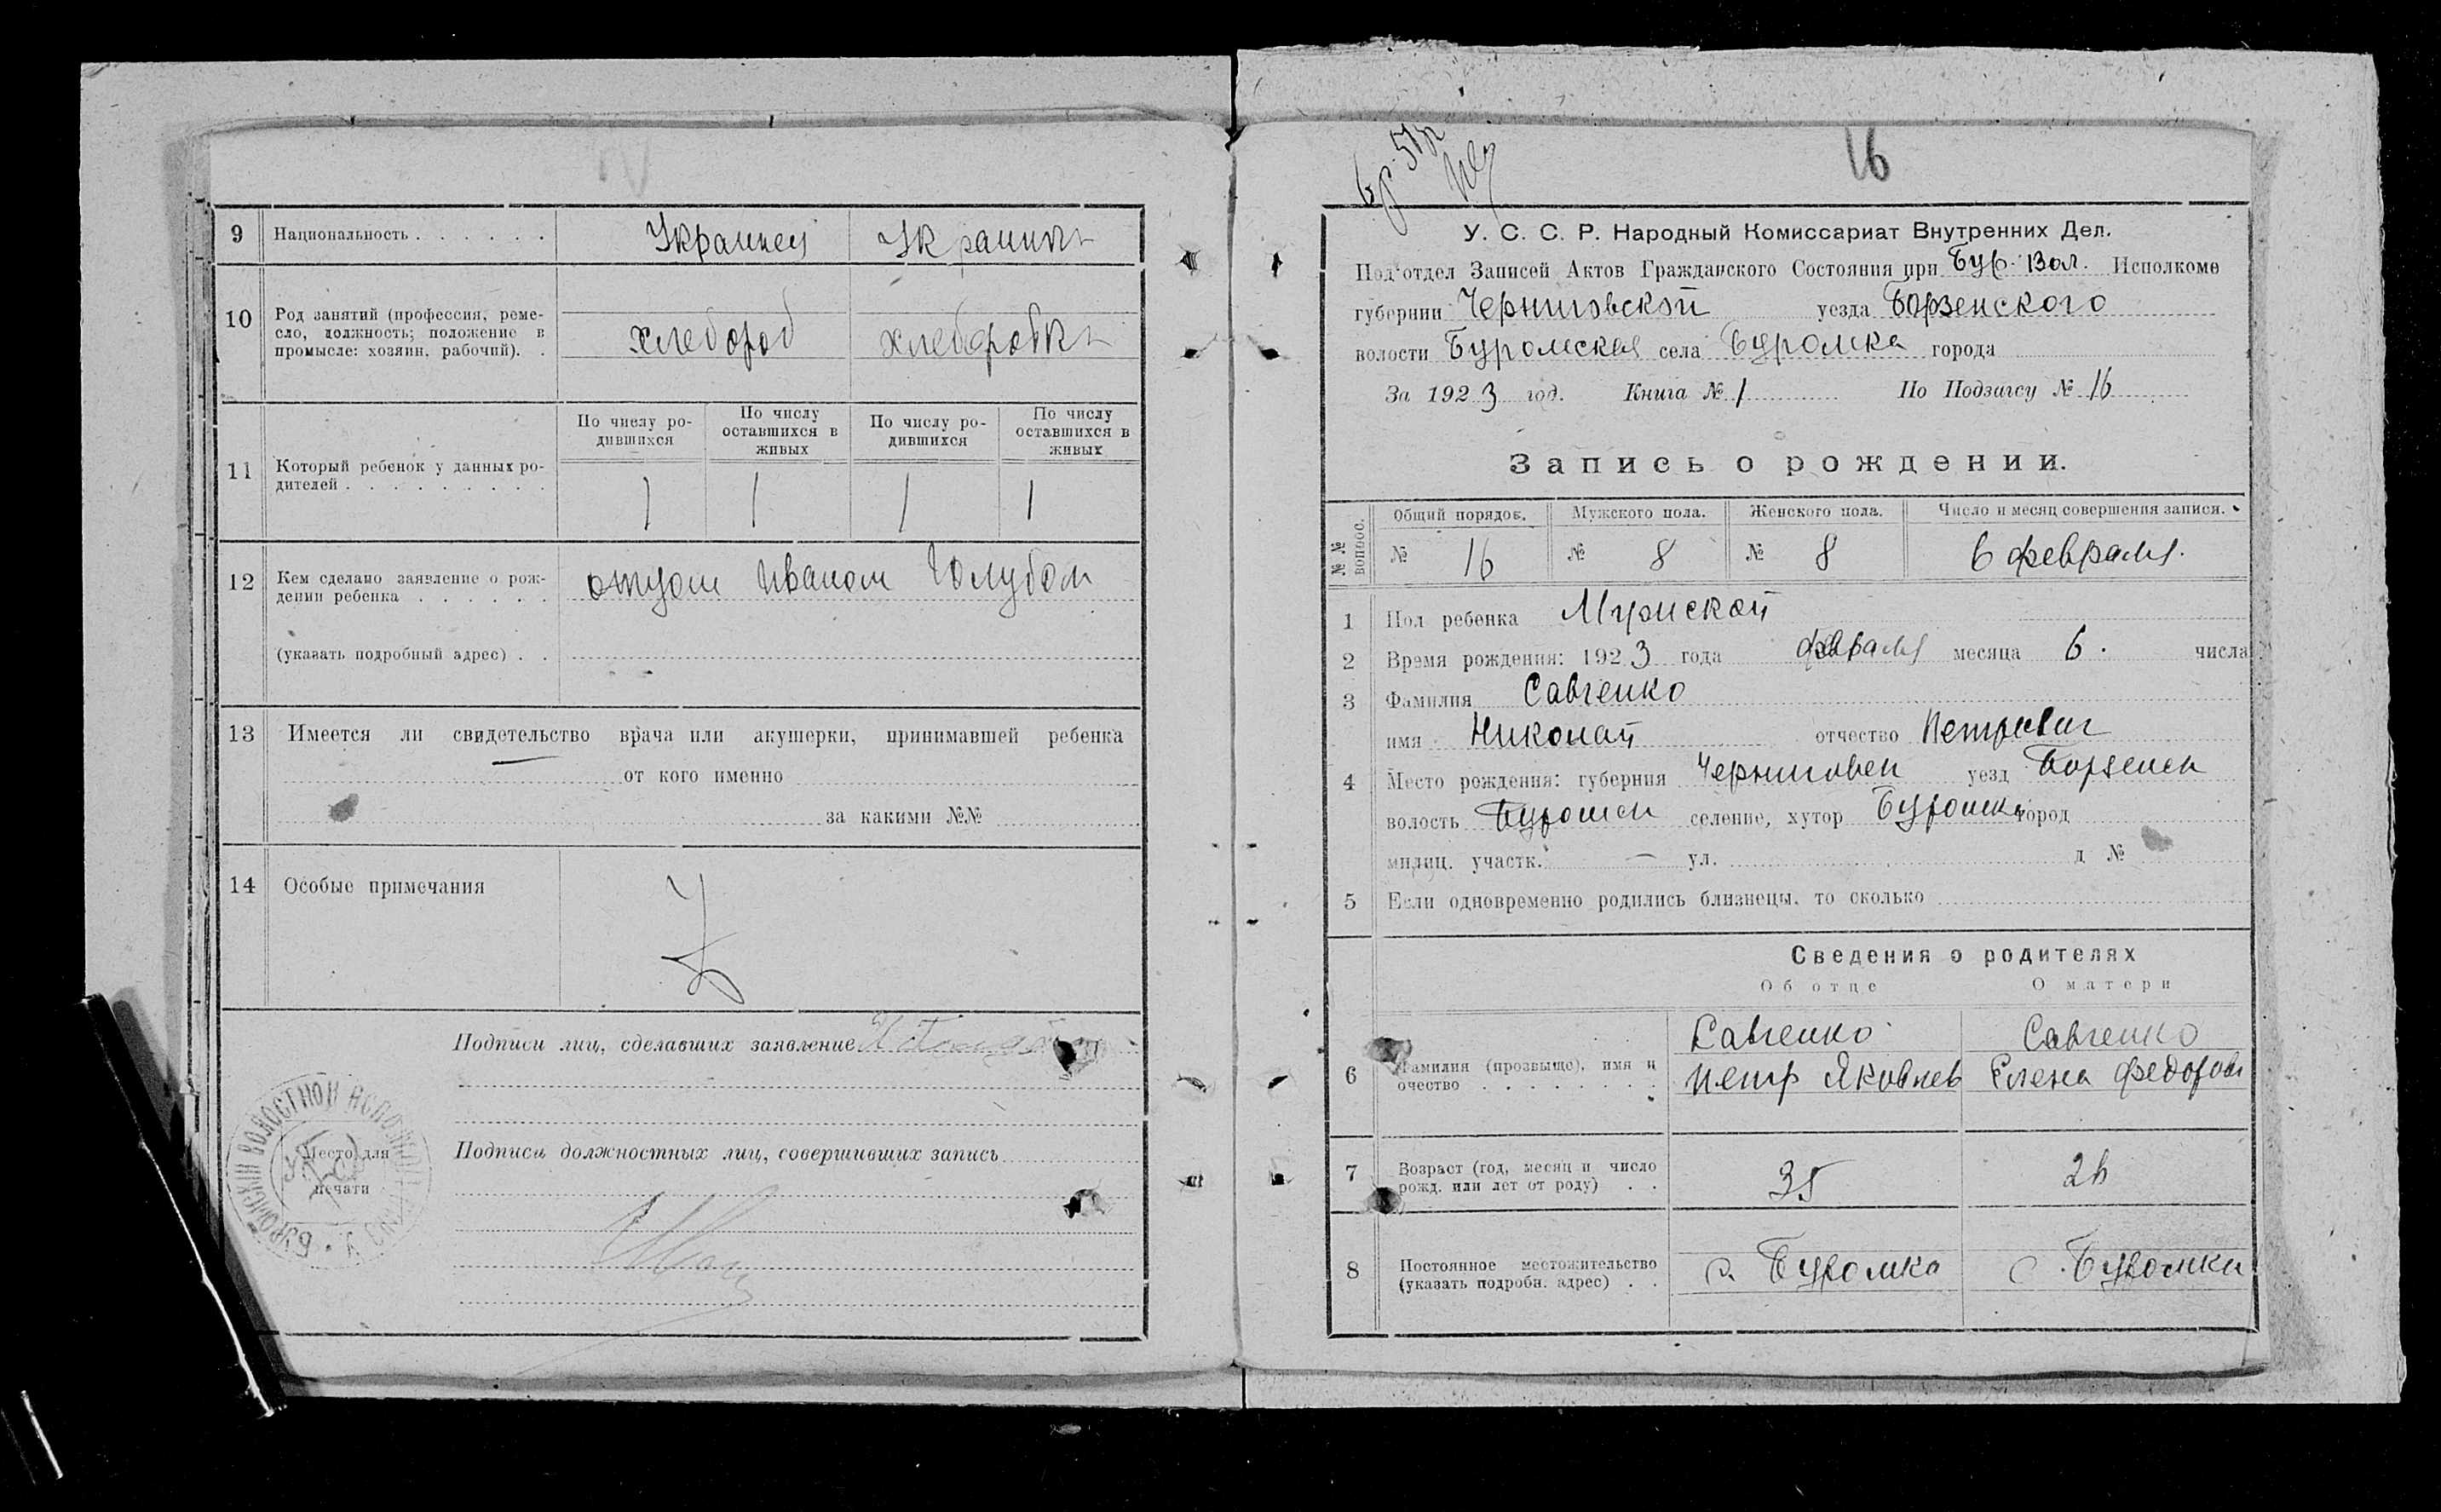 9 Национальность . . . . . . Украинец Украинка
10 Род занятий (профессия, реме-
сло, должность; положение в
промысле: хозяин, рабочий). . хлебороб хлеборобка
11 Который ребенок у данных ро-
дителей . . . . . . . . .
По числу ро-
дившихся
По числу
оставшихся в
живых
По числу ро-
дившихся
По числу
оставшихся в
живых
1 1 1 1
12 Кем сделано заявление о рож-
дении ребенка . . . . . . отцом Иваном Голубом
(указать подробный адрес) . .
13 Имеется ли свидетельство врача или акушерки, принимавшей ребенка
— от кого именно
за какими №№
14 Особые примечания
Подписи лиц, сделавших заявление
Подписи должностных лиц, совершивших запись
Место для
печати
16
У. С. С. Р. Народный Комиссариат Внутренних Дел.
Под'отдел Записей Актов Гражданского Состояния при Бур. Вол. Исполкоме
губернии Черниговской уезда Борзенского
волости Буромская села Буромка города
За 1923 год. Книга № 1 По Подзагсу № 16
Запись о рождении.
№ № вопрос.
Общий порядок. Мужского пола. Женского пола. Число и месяц совершения записи.
№ 16 № 8 № 8 6 февраля.
1 Пол ребенка Мужской
2 Время рождения: 1923 года февраля месяца 6. числа
3 Фамилия Савченко
имя Николай отчество Петрович
4 Место рождения: губерния Черниговск уезд Борзенск
волость Буромск селение, хутор Буромка город
милиц. участк. — ул. д №
5 Если одновременно родились близнецы, то сколько
Сведения о родителях
Об отце О матери
6 Фамилия (прозвыще), имя и
очество . . . . . . . .
Савченко Савченко
Петр Яковлев Елена Федоров
7 Возраст (год, месяц и число
рожд. или лет от роду) . . 35 26
8 Постоянное местожительство
(указать подробн. адрес) . . с. Буромка с. Буромка